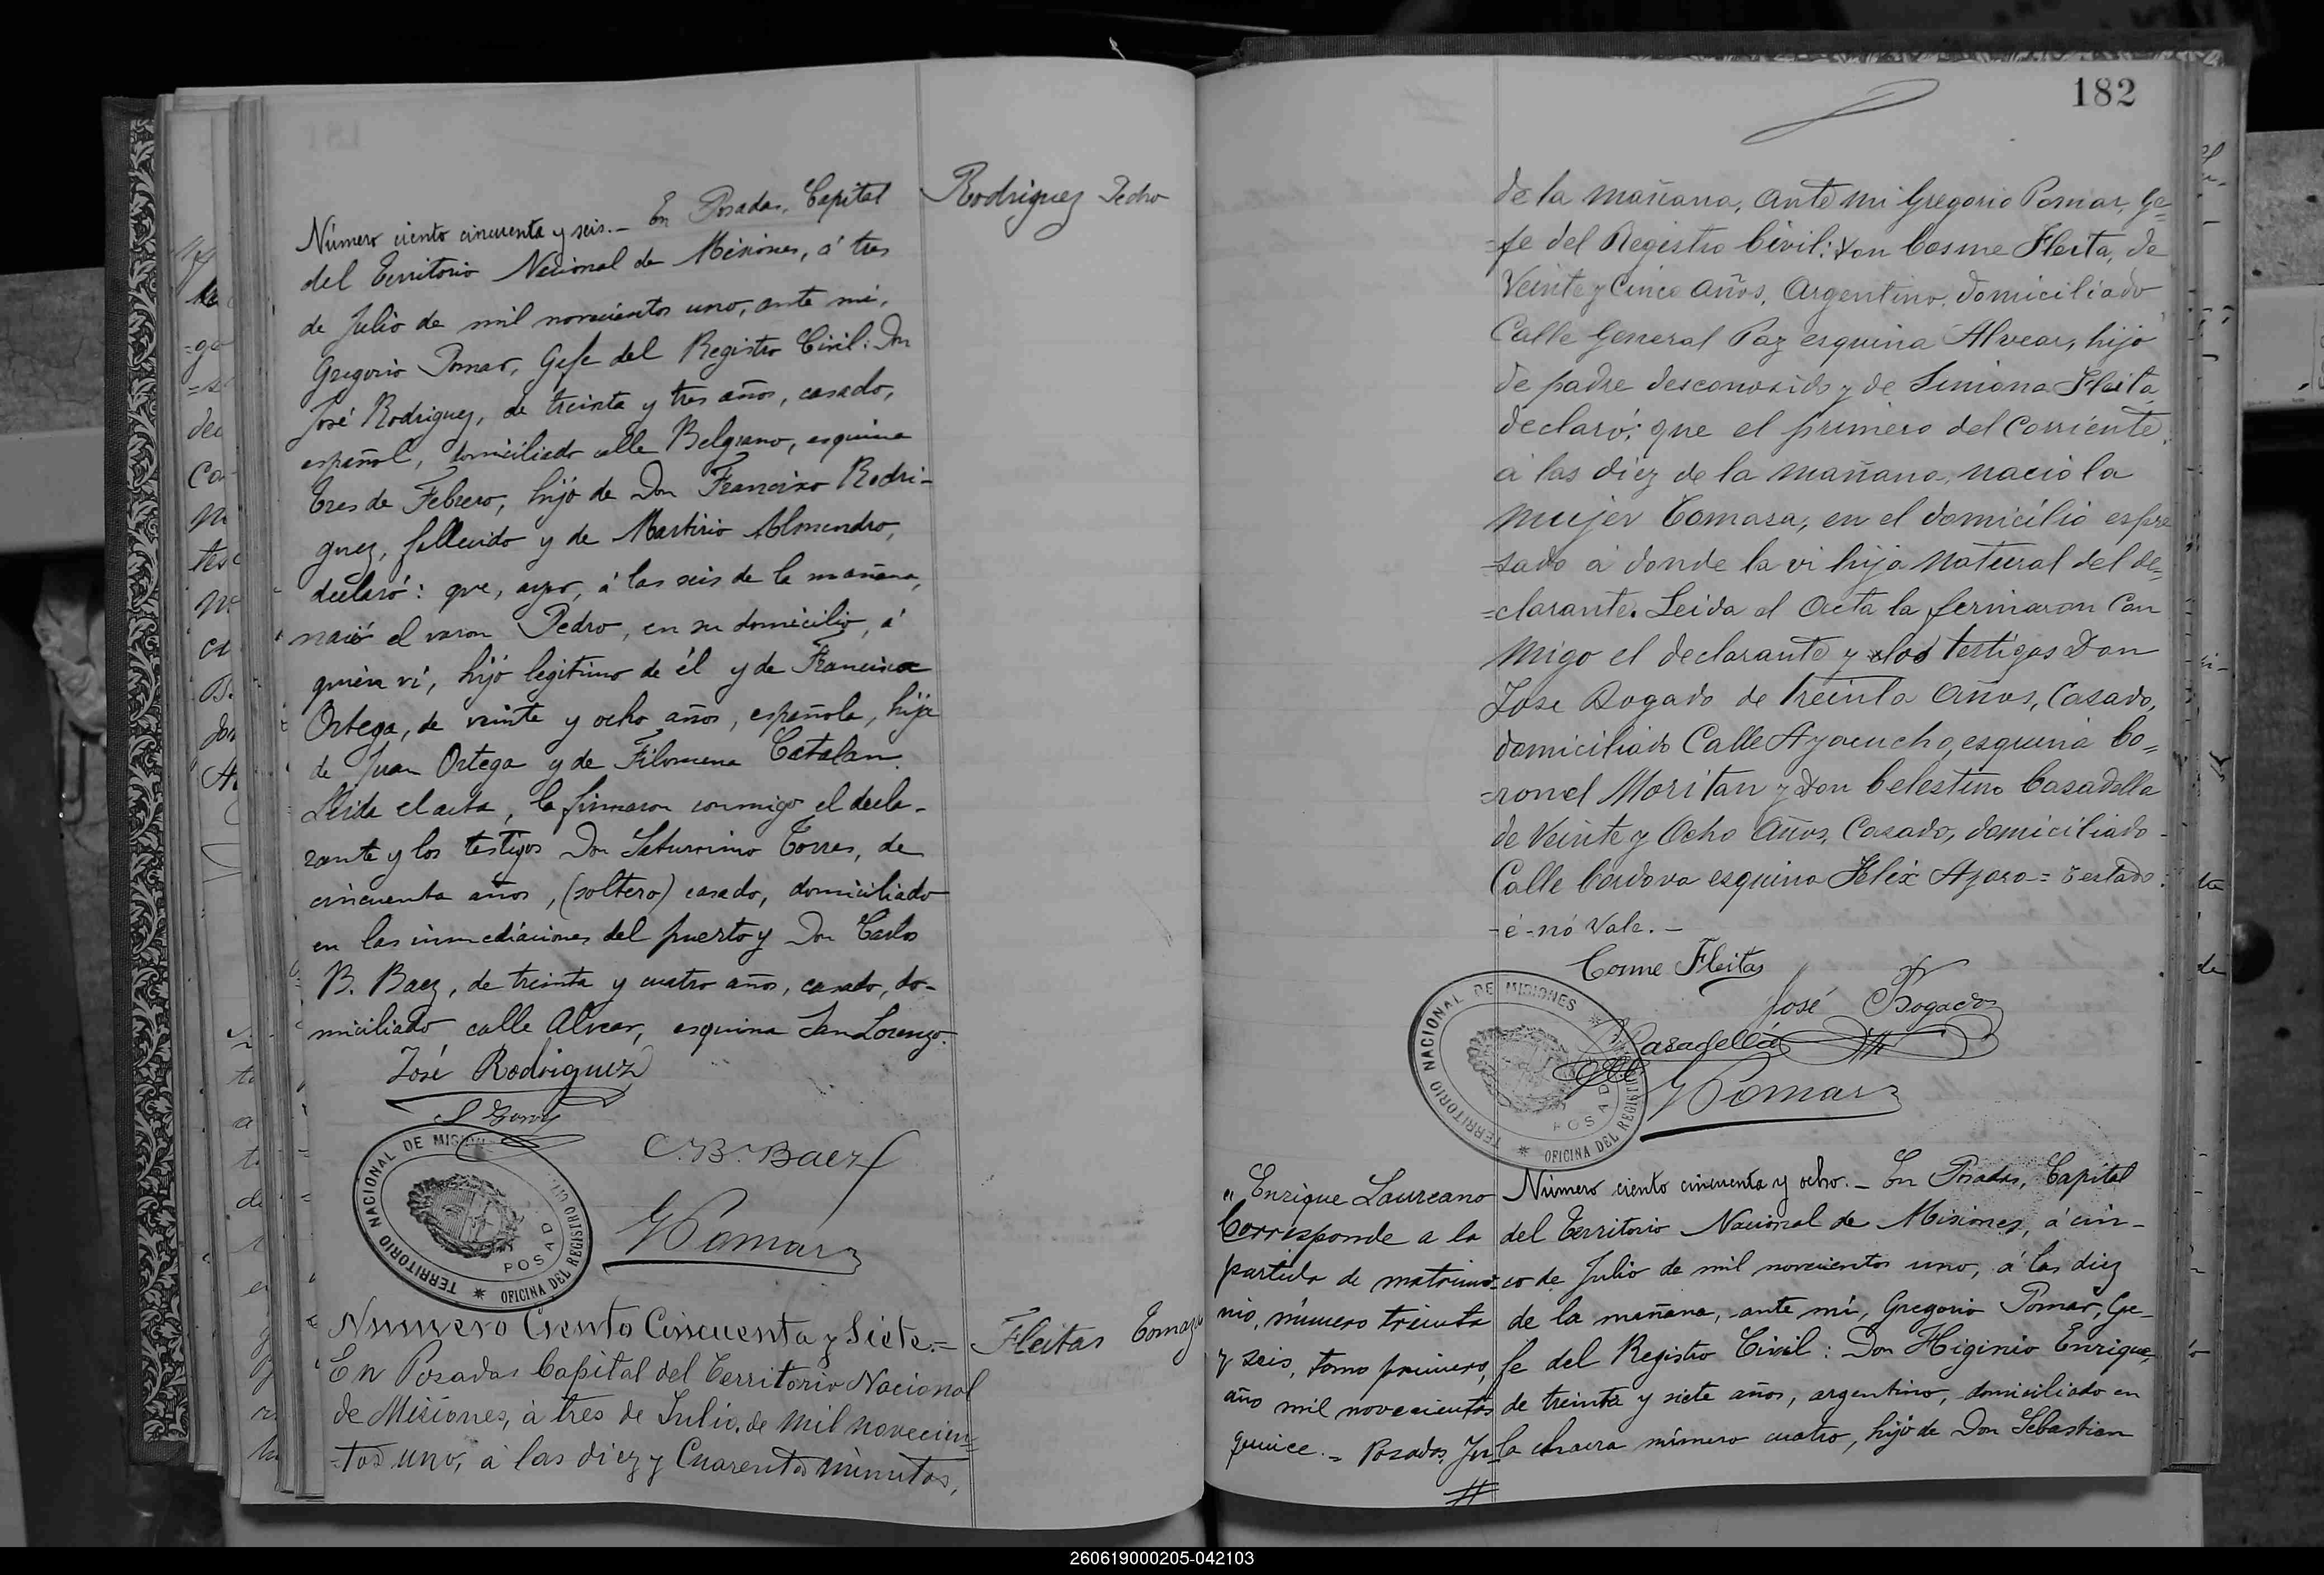 Rodriguez Pedro
Número ciento cincuenta y seis.- En Posadas, Capital
del Territorio Nacional de Misiones, á tres
de Julio de mil novecientos uno, ante mí,
Gregorio Pomar, Gefe del Registro Civil: Don
José Rodriguez, de treinta y tres años, casado,
español, domiciliado calle Belgrano, esquina
Tres de Febrero, hijo de Don Francisco Rodri-
guez, fallecido y de Martirio Almendro,
declaró: que, ayer, á las seis de la mañana,
nació el varon Pedro, en su domicilio, á
quien vi, hijo legitimo de él y de Francisca
Ortega, de veinte y ocho años, española, hija
de Juan Ortega y de Filomena Catalan.
Leida el acta, la firmaron conmigo el decla-
rante y los testigos Don Saturnino Torres, de
cincuenta años, (soltero) casado, domiciliado
en las inmediaciones del puerto y Don Carlos
B. Baez, de treinta y cuatro años, casado, do-
miciliado calle Alvear, esquina San Lorenzo.
José Rodriguez
C. B. Baez
G Pomar
TERRITORIO NACIONAL DE MISIONES
POSADAS
OFICINA DEL REGISTRO CIVIL
Fleitas Tomaza
Numero Ciento Cincuenta y Siete.=
En Posadas Capital del Territorio Nacional
de Misiones, á tres de Julio, de mil novecien=
=tos uno, á las diez y Cuarenta minutos,
182
de la mañana, ante mi Gregorio Pomar, Ge=
=fe del Registro Civil: Don Cosme Fleita, de
Veinte y Cinco años, Argentino, domiciliado
Calle General Paz esquina Alvear, hijo
de padre desconosido y de Simiona Fleita,
declaró: que el primero del Corriente,
á las diez de la mañana, nacio la
mujer Tomasa, en el domicilio espre
=sado á donde la vi hija natural del de=
=clarante. Leida el Acta la fermaron Con
migo el declarante y los testigos Don
Jose Bogado de treinta años, Casado,
domiciliado Calle Ayacucho esquina Co=
=ronel Moritan y Don Celestino Casadella
de Veinte y Ocho años, Casado, domiciliado
Calle Cordova esquina Felix Azara= Testado:
-é-nó Vale.-
Cosme Fleitas
José Bogado
Casadellá
G Pomar
TERRITORIO NACIONAL DE MISIONES
POSADAS
OFICINA DEL REGISTRO
"Enrique Laureano
Corresponde a la
partida de matrimo=
nio, número treinta
y seis, tomo primero,
año mil novecientos
quince.= Posadas, Jul
Número ciento cincuenta y ocho.- En Posadas, Capital
del Territorio Nacional de Misiones, á cin-
co de Julio de mil novecientos uno, á las diez
de la mañana, ante mí, Gregorio Pomar, Ge-
fe del Registro Civil: Don Higinio Enrique,
de treinta y siete años, argentino, domiciliado en
la chacra número cuatro, hijo de Don Sebastian
260619000205-042103